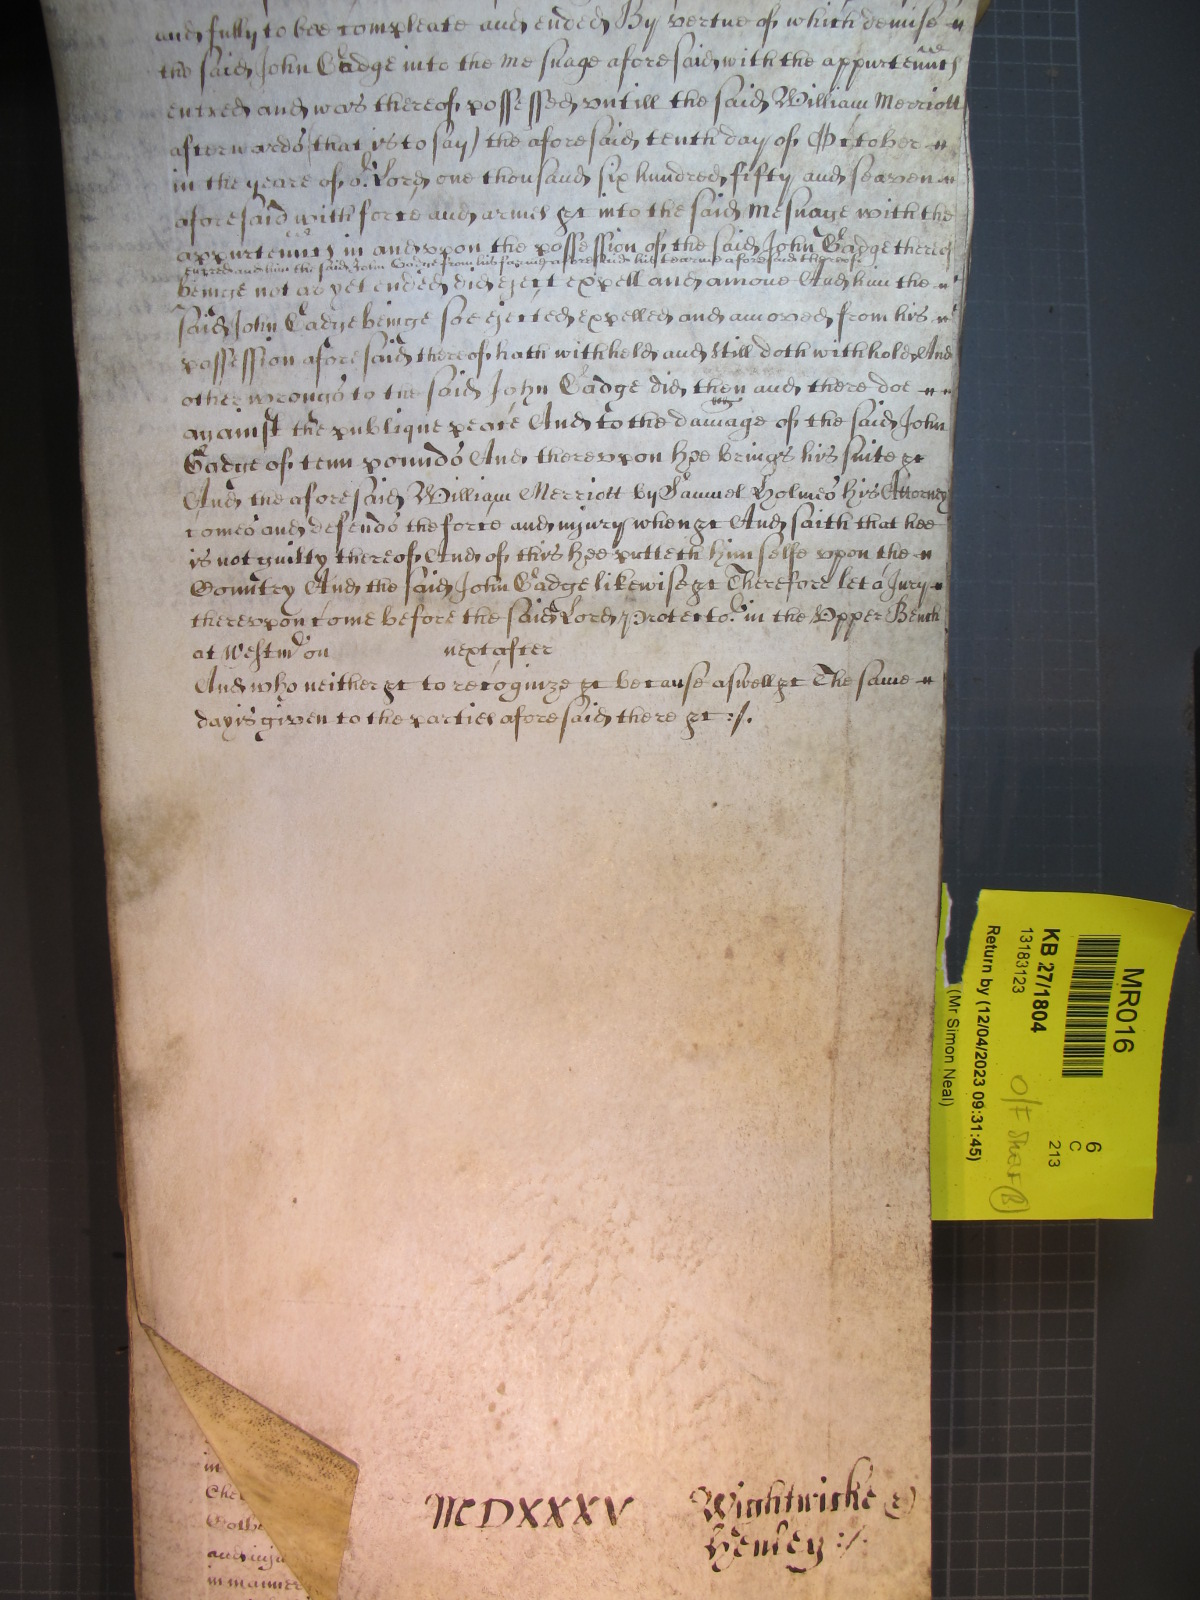 and fully to bee compleate and ended By vertue of which demise
the said John Gadge into the mesuage aforesaid with the appurtenncs
entred and was thereof possessed vntill the said William Merriott
afterwards (that is to say) the aforesaid tenth day of October
in the yeare of or Lord one thousand six hundred fifty and seaven
aforesaid with force and armes &c into the said Mesuage with the
appurtenncs in and vpon the possession of the said John Gadge thereof
entred and him the said John Gadge from his farme aforesaid his tearme aforesaid thereof
beinge not as yet ended did eject expell and amove And him the
said John Gadge beinge soe ejected expelled and amoved from his
possession aforesaid thereof hath withheld and still doth withhold And
other wrongs to the said John Gadge did then and there doe
against the publique peace And to the damage of the said John
Gadge of tenn pounds And therevpon hee brings his suite &c
And the aforesaid William Merriott by Samuel Holmes his Attorney
comes and defends the force and injury when &c And saith that hee
is not guilty thereof And of this hee putteth himselfe vpon the
Country And the said John Gadge likewise &c Therefore let a Jury
therevpon come before the said Lord Protector in the Vpper Bench
at Westmr on next after
And who neither &c to recognize &c because aswell &c The same
day is given to the parties aforesaid there &c :/.
in
Che
and inju
in manner
MCDXXXV
Wightwicke &
Henley :/.
MR016
KB 27/1804
13183123
Return by (12/04/2023 09:31:45)
(Mr Simon Neal)
6
C
213
O/F Shelf (B)